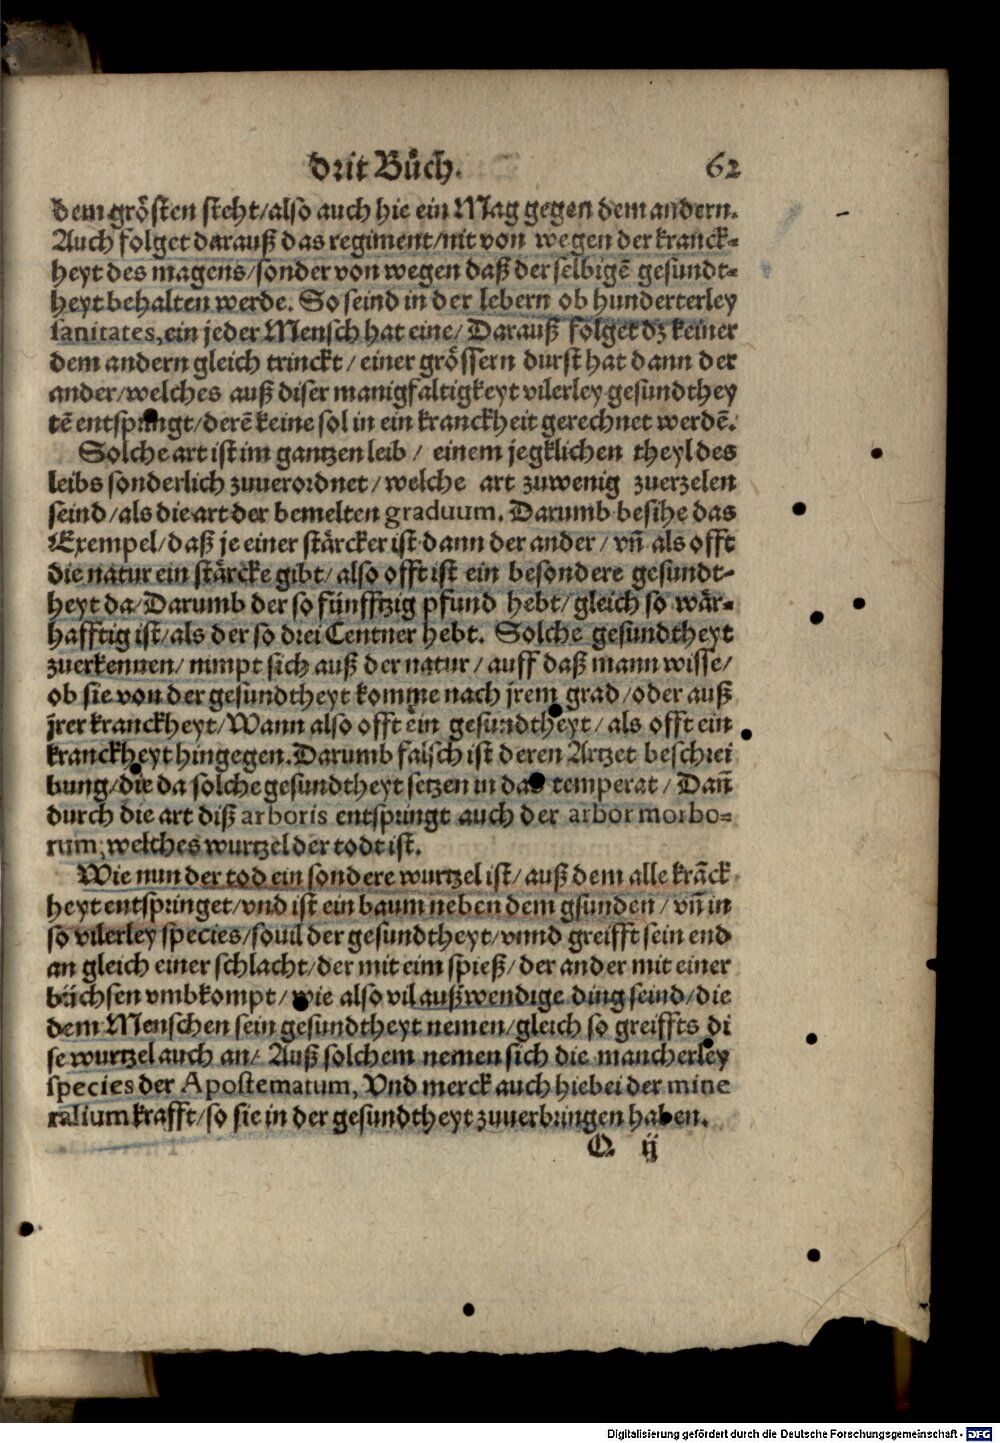 drit Bůch. 62
dem grösten steht/also auch hie ein Mag gegen dem andern.
Auch folget darauß das regiment/nit von wegen der kranck-
heyt des magens/sonder von wegen daß der selbigē gesundt-
heyt behalten werde. So seind in der lebern ob hunderterley
sanitates, ein jeder Mensch hat eine/ Darauß folget dz keiner
dem andern gleich trinckt/ einer grössern durst hat dann der
ander/welches auß diser manigfaltigkeyt vilerley gesundthey
tē entspringt/derē keine sol in ein kranckheit gerechnet werdē.
Solche art ist im gantzen leib / einem jegklichen theyl des
leibs sonderlich zuuerordnet/welche art zuwenig zuerzelen
seind/als die art der bemelten graduum. Darumb besihe das
Exempel/daß je einer stärcker ist dann der ander/ vn̄ als offt
die natur ein stärcke gibt/also offt ist ein besondere gesundt-
heyt da/Darumb der so fünfftzig pfund hebt/gleich so wär-
hafftig ist/als der so drei Centner hebt. Solche gesundtheyt
zuerkennen/ nimpt sich auß der natur/auff daß mann wisse/
ob sie von der gesundtheyt komme nach jrem grad/oder auß
jrer kranckheyt/Wann also offt ein gesundtheyt/als offt ein
kranckheyt hingegen. Darumb falsch ist deren Artzet beschrei
bung/die da solche gesundtheyt setzen in das temperat/ Dan̄
durch die art diß arboris entspringt auch der arbor morbo-
rum, welches wurtzel der todt ist.
Wie nun der tod ein sondere wurtzel ist/auß dem alle krāck
heyt entspringet/vnd ist ein baum neben dem gsunden/vn̄ in
so vilerley species/souil der gesundtheyt/vnnd greifft sein end
an gleich einer schlacht/der mit eim spieß/der ander mit einer
büchsen vmbkompt/wie also vil außwendige ding seind/die
dem Menschen sein gesundtheyt nemen/gleich so greiffts di
se wurtzel auch an/ Auß solchem nemen sich die mancherley
species der Apostematum, Vnd merck auch hiebei der mine
ralium krafft/so sie in der gesundtheyt zuuerbringen haben.
Q ij
Digitalisierung gefördert durch die Deutsche Forschungsgemeinschaft - DFG